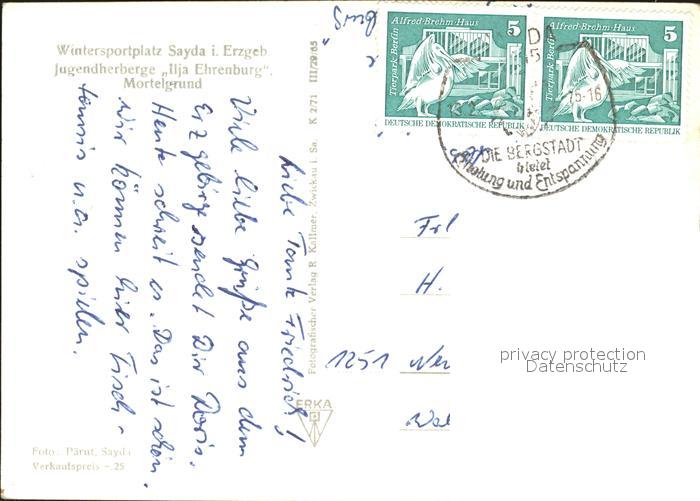 Wintersportplatz Sayda i. Erzgeb
Jugendherberge „Ilja Ehrenburg“,
Mortelgrund
Liebe Tante Friedrich!
Viele liebe Grüße aus dem
Erzgebirge sendet Dir Doris.
Heute schneit es. Das ist schön.
Wir können hier Tisch-
tennis u.a. spielen.
Foto: Pärut, Sayda
Verkaufspreis -.25
Fotografischer Verlag R. Kallmer, Zwickau i. Sa. K 2/71 III/29/65
ERKA
Alfred-Brehm-Haus 5
Tierpark Berlin
DEUTSCHE DEMOKRATISCHE REPUBLIK
Alfred-Brehm-Haus 5
Tierpark Berlin
DEUTSCHE DEMOKRATISCHE REPUBLIK
15-16
DIE BERGSTADT
bietet
Erholung und Entspannung
Frl
H.
1251
privacy protection
Datenschutz